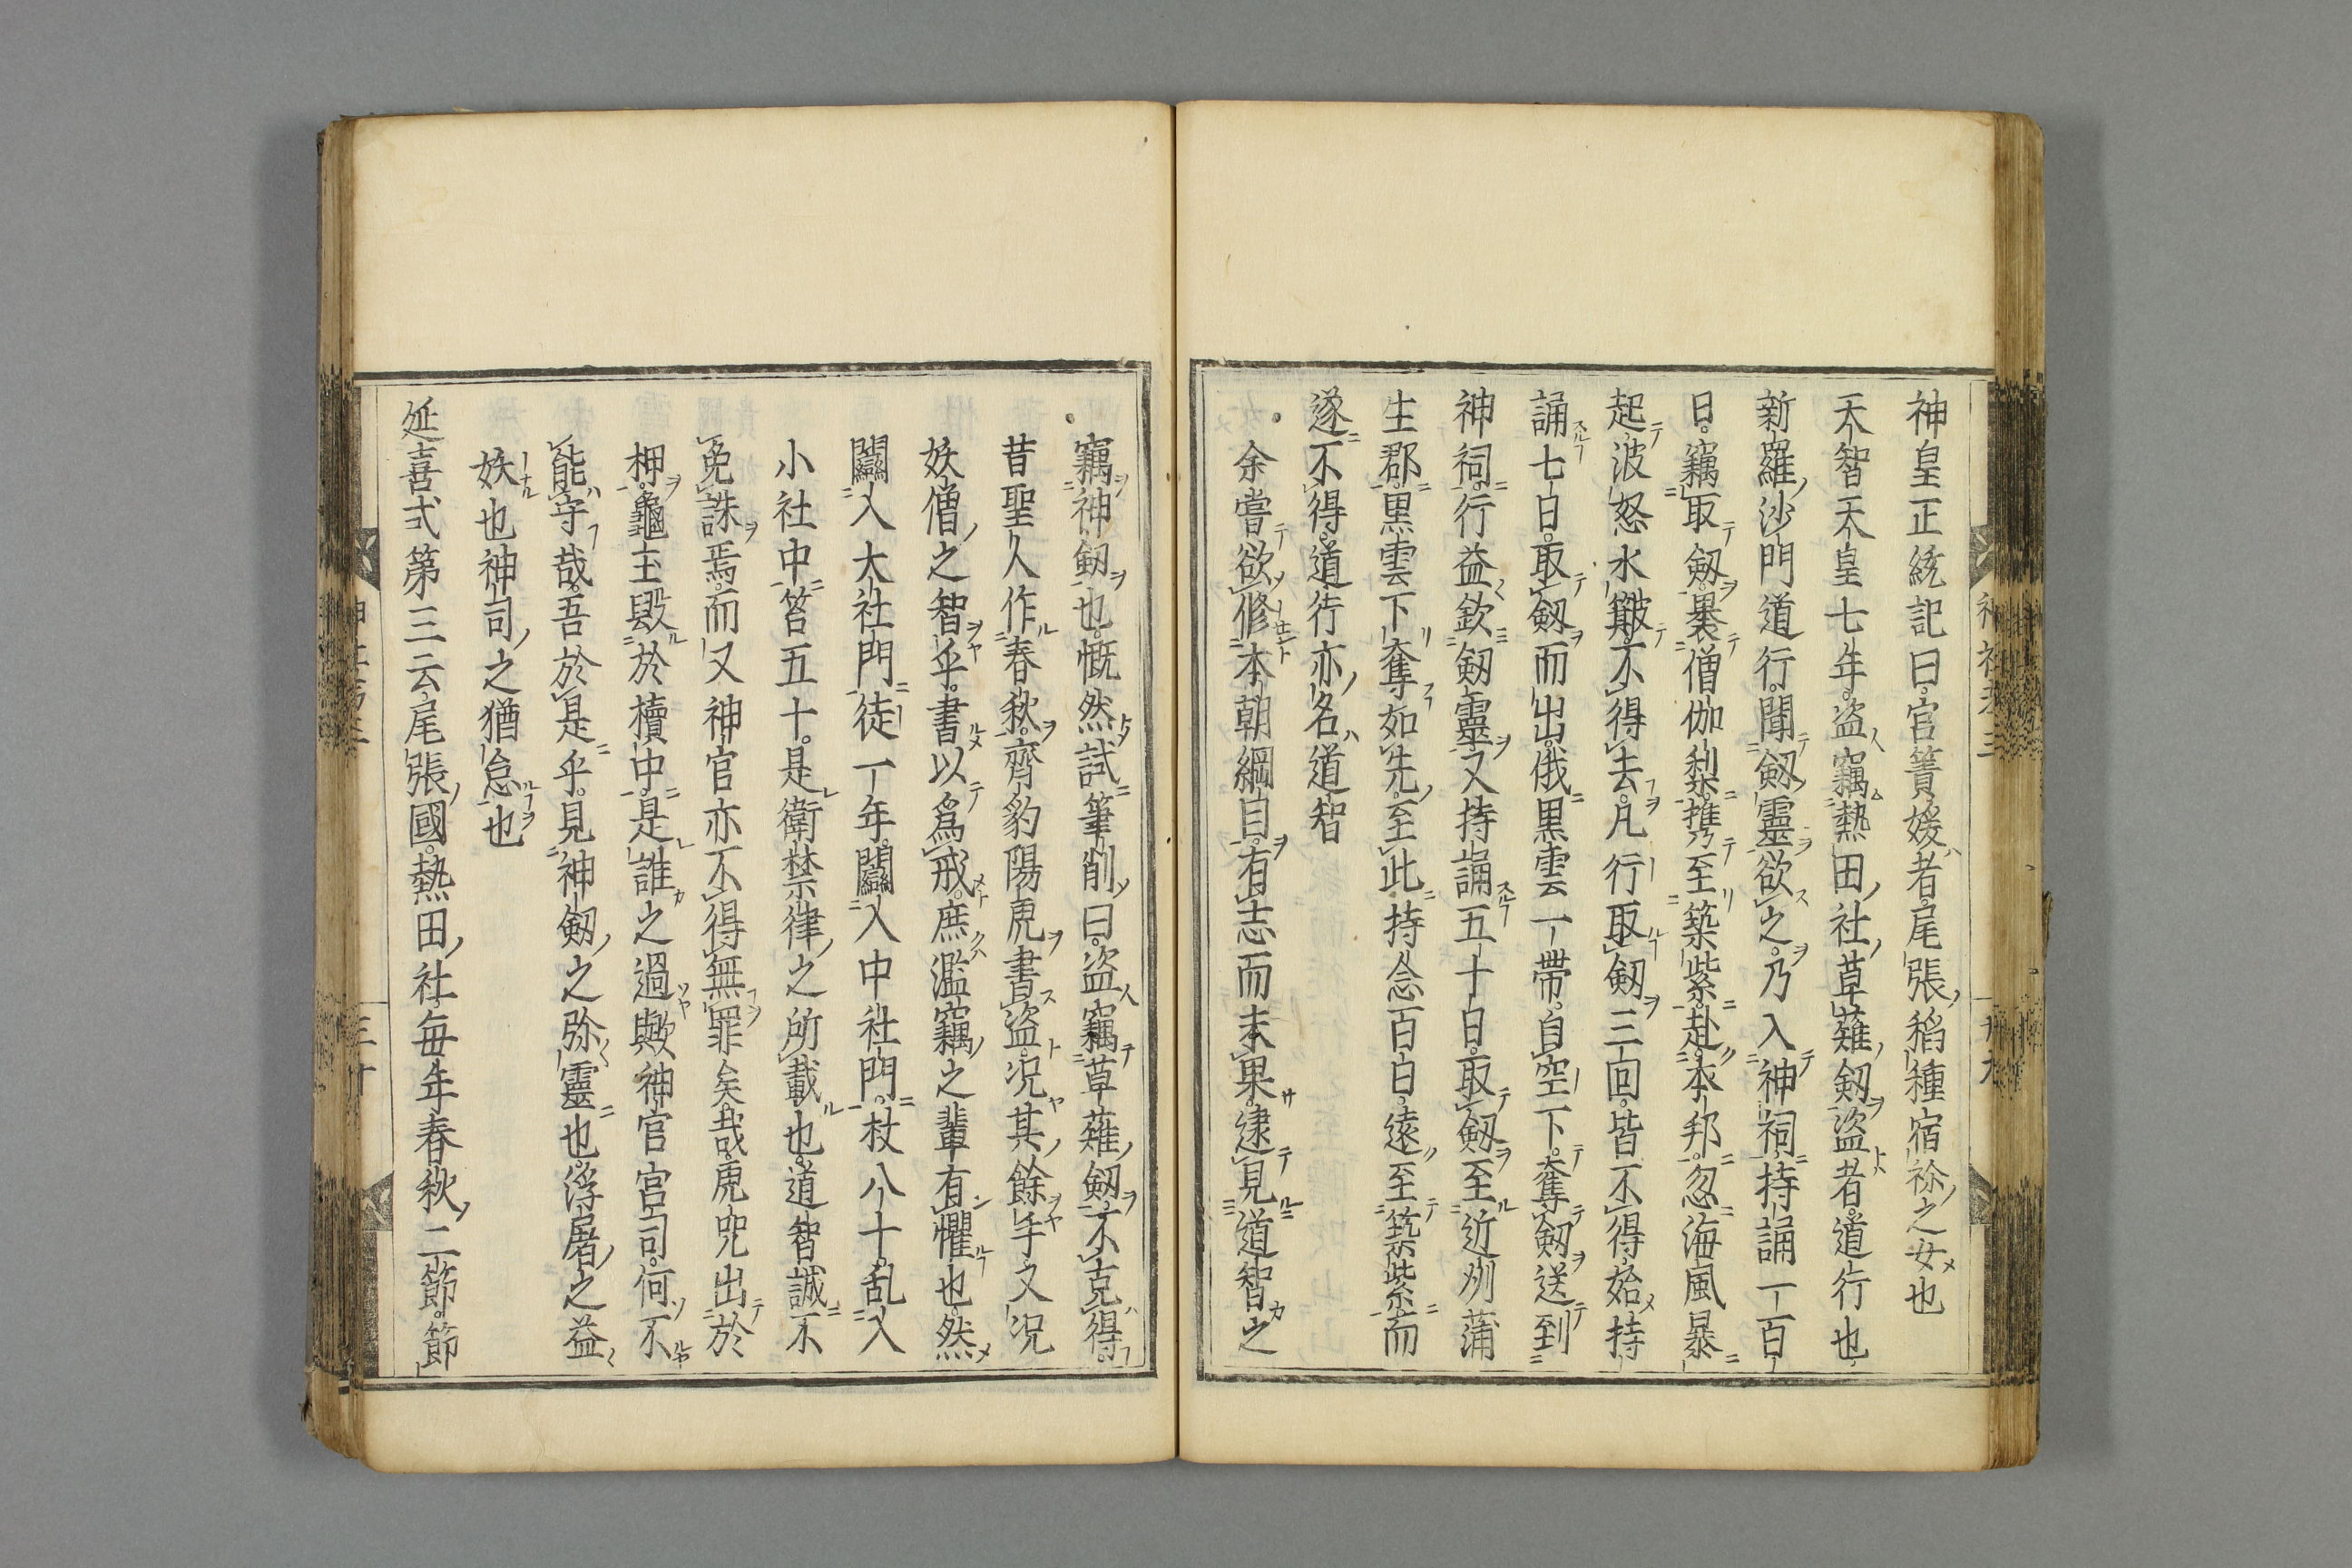 神皇正統記曰官簀媛者尾張稻種宿祢之女也
天智天皇七年盗竊熱田社草薙劔盗者道行也
新羅沙門道行聞劔靈欲之乃入神祠持誦一百
日竊取劔裹僧伽梨携至築紫赴本邦忽海風暴
起波怒水皺不得去凡行取劔三回皆不得始持
誦七日取劔而出俄黒雲一帶自空下奪劔送到
神祠行益欽劔靈又持誦五十日取劔至近刕蒲
生郡黒雲下奪如先至此持念百日遠至築紫而
遂不得道行亦名道智
余嘗欲修本朝綱目有志而未果逮見道智之
竊神劔也慨然試筆削曰盗竊草薙劔不克得
昔聖人作春秋齊豹陽虎書盗况其餘乎又况
妖僧之智乎書以爲戒庶濫竊之輩有懼也然
闌入大社門徒一年闌入中社門杖八十乱入
小社中笞五十是衛禁律之所載也道智誠不
免誅焉而又神官亦不得無罪矣哉虎兕出於
柙龜玉毀於櫝中是誰之過歟神官宮司何不
能守哉吾於是乎見神劔之弥靈也浮屠之益
妖也神司之猶怠也
延喜式第三云尾張國熱田社毎年春秋二節節